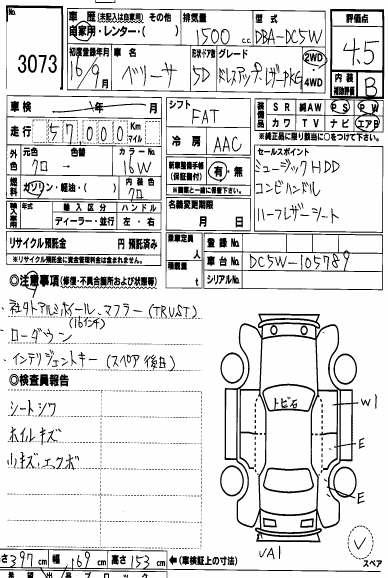 No. 3073
車歴 (未記入は自家用) その他
自家用・レンター( )
排気量 1500 c.c.
型式 DBA-DC5W
評価点 4.5
初度登録年月 16/9月
車名 ベリーサ
形状・ドア数 5D
グレード ドレスアップ・レザーPKG
2WD
4WD
内装 補助評価 B
車検 年 月
シフト FAT
装備品
SR 純AW PS PW
カワ TV ナビ エアB
※純正品に限り該当に○をつけて下さい
走行 57000 Km マイル
冷房 AAC
セールスポイント
ミュージックHDD
コンビハンドル
ハーフレザーシート
外色 元色 色替 カラーNo
クロ → 16W
新車整備手帳(保証書付) 有・無
燃料 ガソリン・軽油・( )
内装色 クロ
名義変更期限 月 日
輸入車 年式 輸入区分 ハンドル
ディーラー・並行 左・右
リサイクル預託金 円 預託済み
※リサイクル預託金には資金管理料金は含まれません。
乗車定員 人
積載量 t
登録No
車台No DC5W-105789
シリアルNo
◎注意事項(修復・不具合箇所および状態等)
社外アルミホイール、マフラー(TRUST)
(16インチ)
ローダウン
インテリジェントキー(スペア後日)
◎検査員報告
シートシワ
ホイルキズ
小キズ、エクボ
トビ石
W1
E
E
UA1
スペア
長さ397cm 幅169cm 高さ153cm ←(車検証上の寸法)